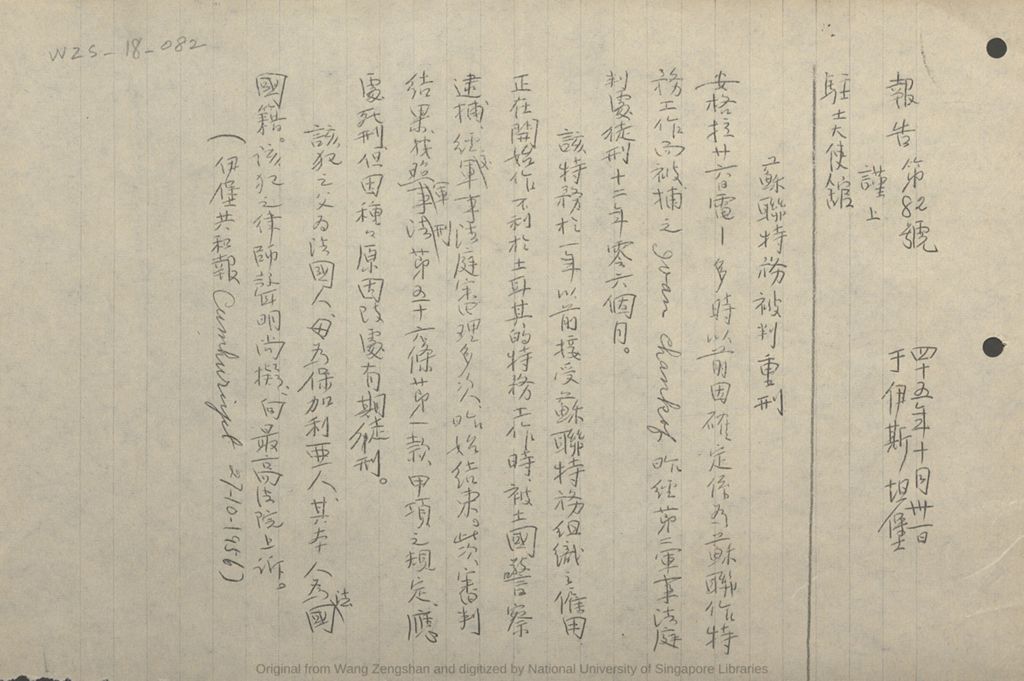 WZS-18-082
報告第82號
謹上
駐土大使館
四十五年十月卅一日
于伊斯坦堡
蘇聯特務被判重刑
安格拉廿六日電—多時以前因確定係為蘇聯作特
務工作而被捕之 Ivan Chankof 昨經第二軍事法庭
判處徒刑十二年零六個月。
該特務於一年以前接受蘇聯特務組織之僱用
正在開始作不利於土耳其的特務工作時，被土國警察
逮捕，經軍事法庭審理多次，昨始結束。此次審判
結果，依照軍事刑法第五十六條第一款，甲項之規定，應
處死刑但因種々原因改處有期徒刑。
該犯之父為法國人，母為保加利亞人，其本人為法國
國籍。該犯之律師聲明尚擬向最高法院上訴。
(伊堡共和報 Cumhuriyet 27-10-1956)
Original from Wang Zengshan and digitized by National University of Singapore Libraries.